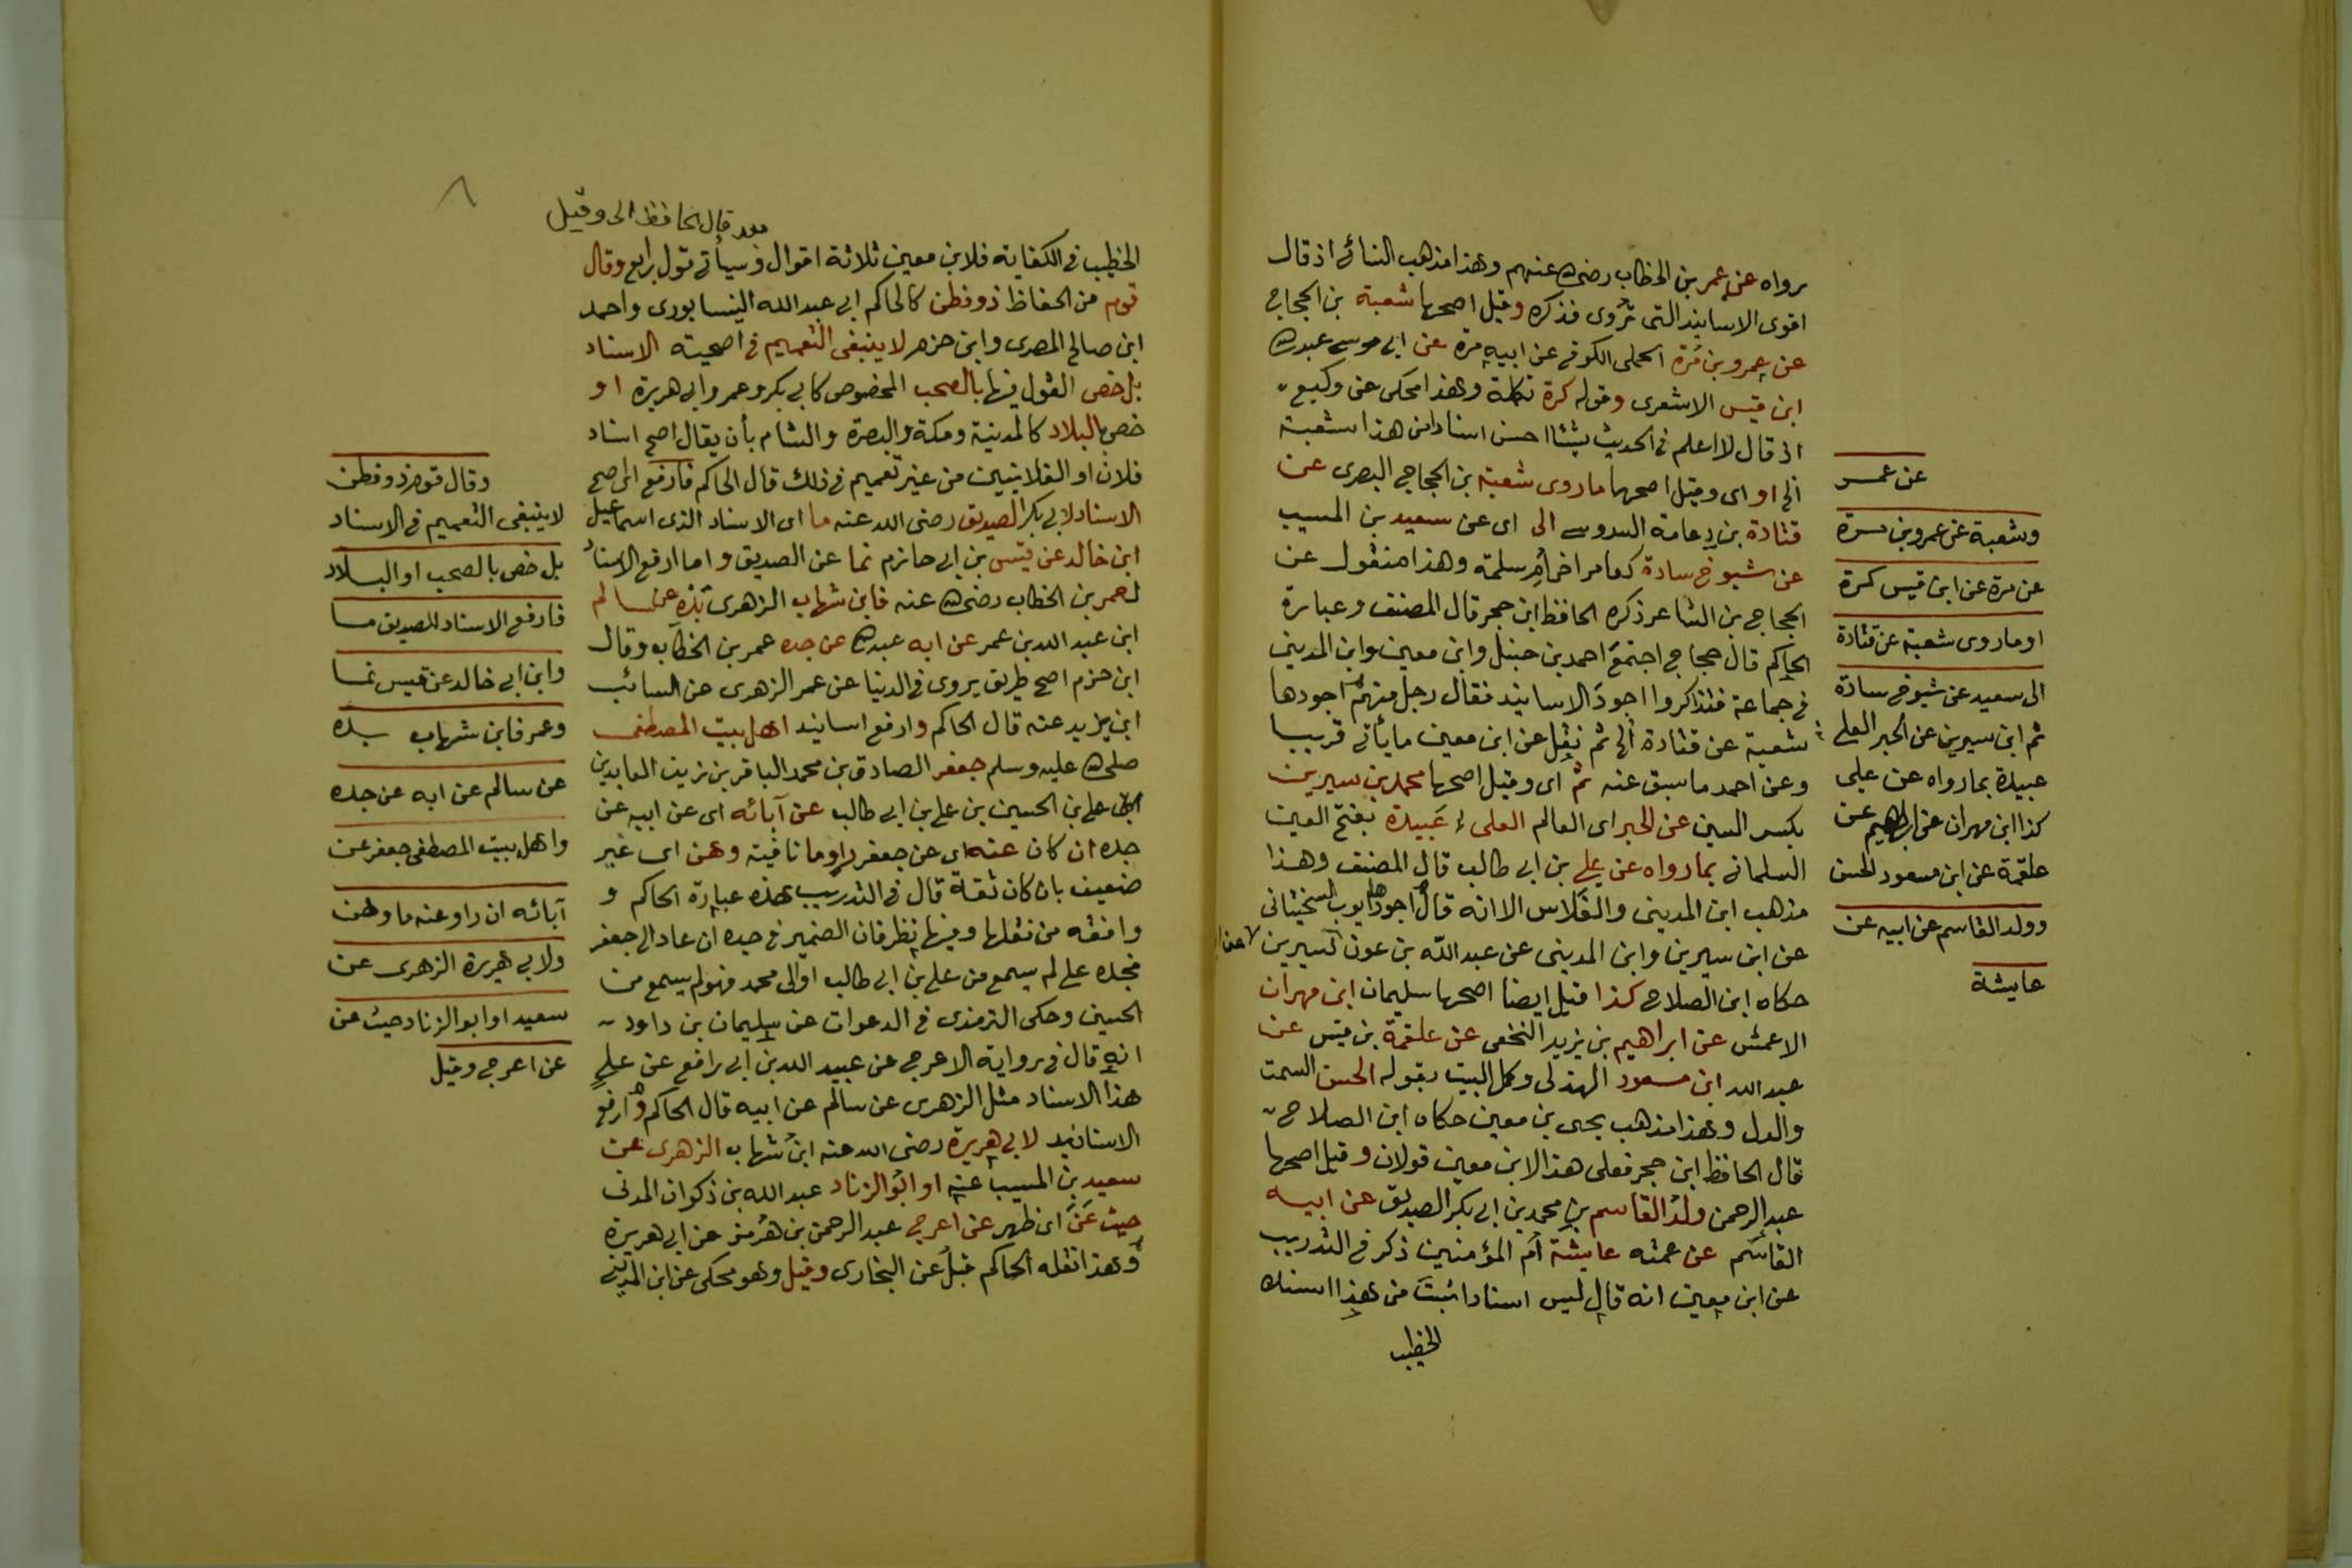 رواه عن عمر بن الخطاب رضي الله عنهم وهذا مذهب النسائى اذ قال
اقوى الاسانيد التى تروى فذكره وقيل اصحها شعبة بن الحجاج
عن عمرو بن مرة الجملى الكوفى عن ابيه مرة عن ابى موسى عبد الله
ابن قيس الاشعرى وقوله كرة تكملة وهذا محكى عن وكيع
اذ قال لا اعلم فى الحديث شيئا احسن اسنادا من هذا شعبة
الخ او اى وقيل اصحها ما روى شعبة بن الحجاج البصرى عن
قتادة بن دعامة السدوسى الى اى عن سعيد بن المسيب
عن شيوخ سادة كعامر اخى ام سلمة وهذا منقول عن
الحجاج بن الشاعر ذكره الحافظ ابن حجر قال المصنف وعبارة
الحاكم قال حجاج اجتمع احمد بن حنبل وابن معين وابن المدينى
فى جماعة فتذاكروا اجود الاسانيد فقال رجل منهم اجودها
شعبة عن قتادة الخ ثم نقل عن ابن معين ما يأتى قريبا
وعن احمد ما سبق عنه ثم اى وقيل اصحها محمد بن سيرين
بكسر السين عن الحبر اى العالم العلى عبيدة بفتح العين
السلمانى بما رواه عن على بن ابى طالب قال المصنف وهذا
مذهب ابن المدينى والفلاس الا انه قال اجودها ايوب السختيانى
عن ابن سيرين وابن المدينى عن عبد الله بن عون ابن سيرين
حكاه ابن الصلاح كذا قيل ايضا اصحها سليمان ابن مهران
الاعمش عن ابراهيم بن يزيد النخعى عن علقمة بن قيس عن
عبد الله ابن مسعود الهذلى وكمل البيت بقوله الحسن السمت
والدل وهذا مذهب يحيى بن معين حكاه ابن الصلاح
قال الحافظ ابن حجر فعلى هذا لابن معين قولان وقيل اصحها
عبد الرحمن ولد القاسم بن محمد بن ابى بكر الصديق عن ابيه
القاسم عن عمته عايشة ام المؤمنين ذكر فى التدريب
عن ابن معين انه قال ليس اسنادا ثبت من هذا اسنده
الخطيب
عن عمر
وشعبة عن عمرو بن مرة
عن مرة عن ابن قيس كرة
او ما روى شعبة عن قتادة
الى سعيد عن شيوخ سادة
ثم ابن سيرين عن الحبر العلى
عبيدة بما رواه عن على
كذا ابن مهران عن ابراهيم عن
علقمة عن ابن مسعود الحسن
وولد القاسم عن ابيه عن
عايشة
٨
قال الحافظ الى وقيل
الخطيب فى الكفاية فلابن معين ثلاثة اقوال وسيأتى قول رابع وقال
قوم من الحفاظ ذو فطن كالحاكم ابى عبد الله النيسابورى واحمد
ابن صالح المصرى وابن حزم لا ينبغى التعميم فى اصحية الاسناد
بل خص القول فيها بالصحب المخصوص كابى بكر وعمر وابى هريرة او
خص بالبلاد كالمدينة ومكة والبصرة والشام بأن يقال اصح اسناد
فلان او الفلانيين من غير تعميم فى ذلك قال الحاكم فارفع اى اصح
الاسناد لابى بكر الصديق رضى الله عنه ما اى الاسناد الذى اسماعيل
ابن خالد عن قيس بن ابى حازم نما عن الصديق واما ارفع الاسناد
لعمر بن الخطاب رضى الله عنه فابن شهاب الزهرى بذه عن سالم
ابن عبد الله بن عمر عن ابه عبد الله عن جده عمر بن الخطاب وقال
ابن حزم اصح طريق يروى فى الدنيا عن عمر الزهرى عن السائب
ابن يزيد عنه قال الحاكم وارفع اسانيد اهل بيت المصطفى
صلى الله عليه وسلم جعفر الصادق بن محمد الباقر بن زين العابدين
على بن الحسين بن على بن ابى طالب عن آبائه اى عن ابيه عن
جده ان كان عنه اى عن جعفر راو ما نافية وهن اى غير
ضعيف بان كان ثقة قال فى التدريب هذه عبارة الحاكم و
وافقه من نقلها وفيها نظر فان الضمير فى جده ان عاد الى جعفر
فجده على لم يسمع من على بن ابى طالب او الى محمد فهو لم يسمع من
الحسين وحكى الترمذى فى الدعوات عن سليمان بن داود
انه قال فى رواية الاعرج عن عبيد الله بن ابى رافع عن على
هذا الاسناد مثل الزهرى عن سالم عن ابيه قال الحاكم وارفع
الاسانيد لابى هريرة رضى الله عنه ابن شهاب الزهرى عن
سعيد بن المسيب عنه او ابو الزناد عبد الله بن ذكوان المدنى
حيث عن اى ظهر عن اعرج عبد الرحمن بن هرمز عن ابى هريرة
وهذا نقله الحاكم قبل عن البخارى وقيل وهو محكى عن ابن المدينى
وقال قوم ذو فطن
لا ينبغى التعميم فى الاسناد
بل خص بالصحب او البلاد
فارفع الاسناد للصديق ما
وابن ابى خالد عن قيس نما
وعمر فابن شهاب بذه
عن سالم عن ابه عن جده
واهل بيت المصطفى جعفر عن
آبائه ان راو عنه ما وهن
ولابى هريرة الزهرى عن
سعيد او ابو الزناد حيث عن
عن اعرج وقيل